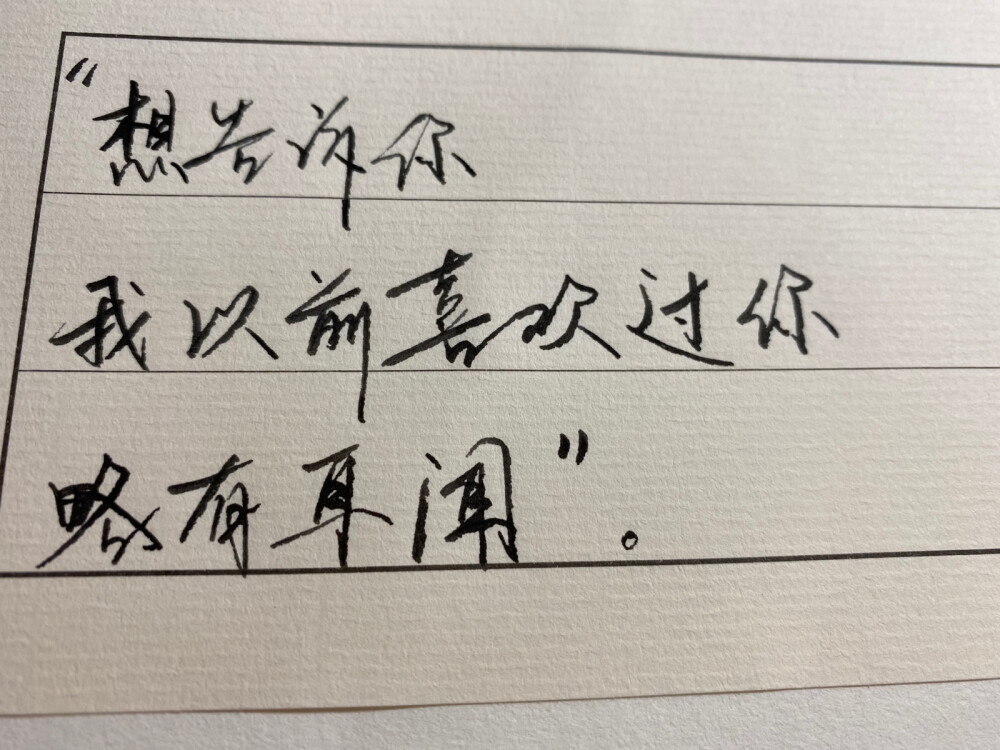 “想告诉你
我以前喜欢过你
略有耳闻”。